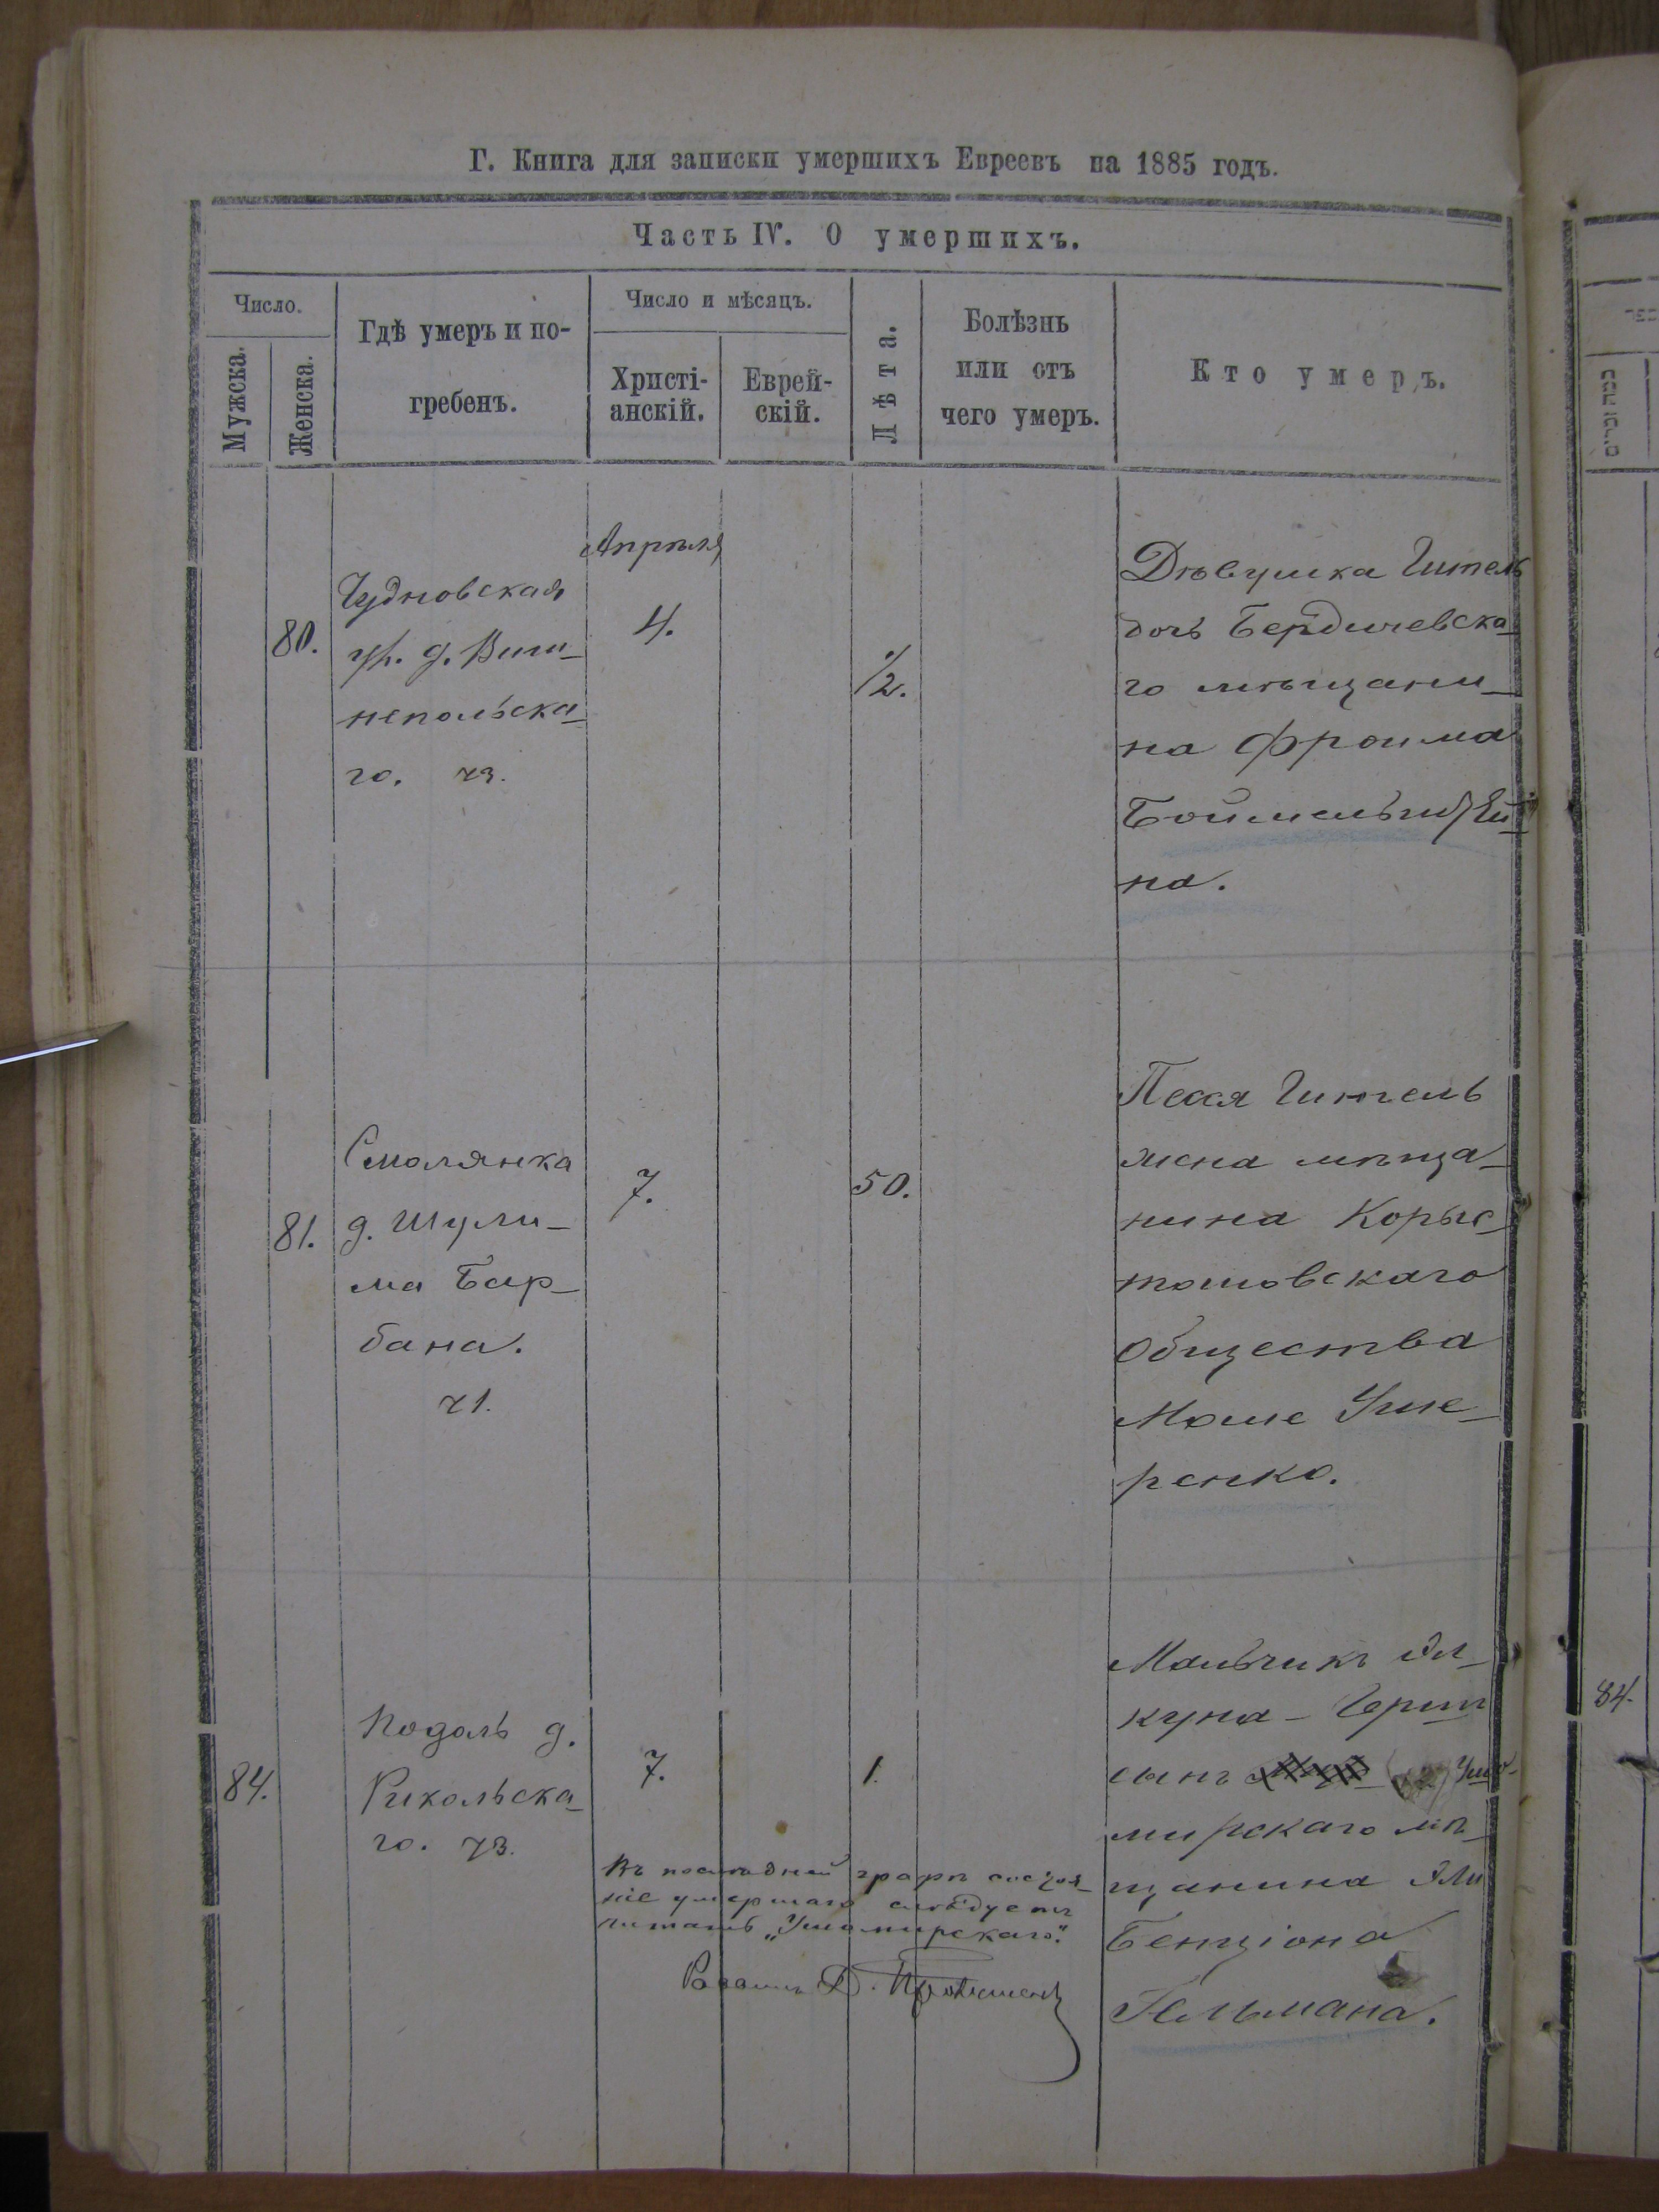 Г. Книга для записки умершихъ Евреевъ на 1885 годъ.
Часть IV. О умершихъ.
Число.
Мужска.
Женска.
Гдѣ умеръ и по-
гребенъ.
Число и мѣсяцъ.
Христі-
анскій.
Еврей-
скій.
Лѣта.
Болѣзнь
или отъ
чего умеръ.
Кто умеръ.
80.
Чудновская
ул. д. Виш-
непольска-
го.
Апрѣля
4.
1/2.
Дѣвушка Гитель
дочь Бердичевска-
го мѣщани-
на Фроима
на.
81.
Смолянка
д. Шули-
ма Бар-
бана.
7.
50.
Песся Гитель
жена мѣща-
нина Корыс-
тошовскаго
общества
Моше Уше-
ренко.
84.
Подоль д.
Рикольска-
го.
7.
1.
Мальчикъ
куна - Герш
сынъ Ушо-
мирскаго мѣ-
щанина Эли
Бенціона
Гельмана.
Въ послѣдней графѣ состоя-
ніе умершаго слѣдуетъ
читать „Ушомирскаго".
Раввинъ
84.